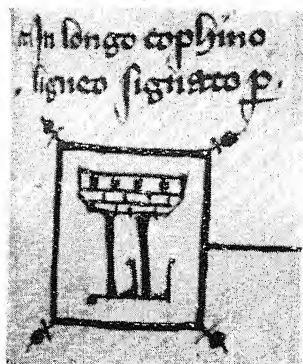 In longo cophino
ligneo signato p.